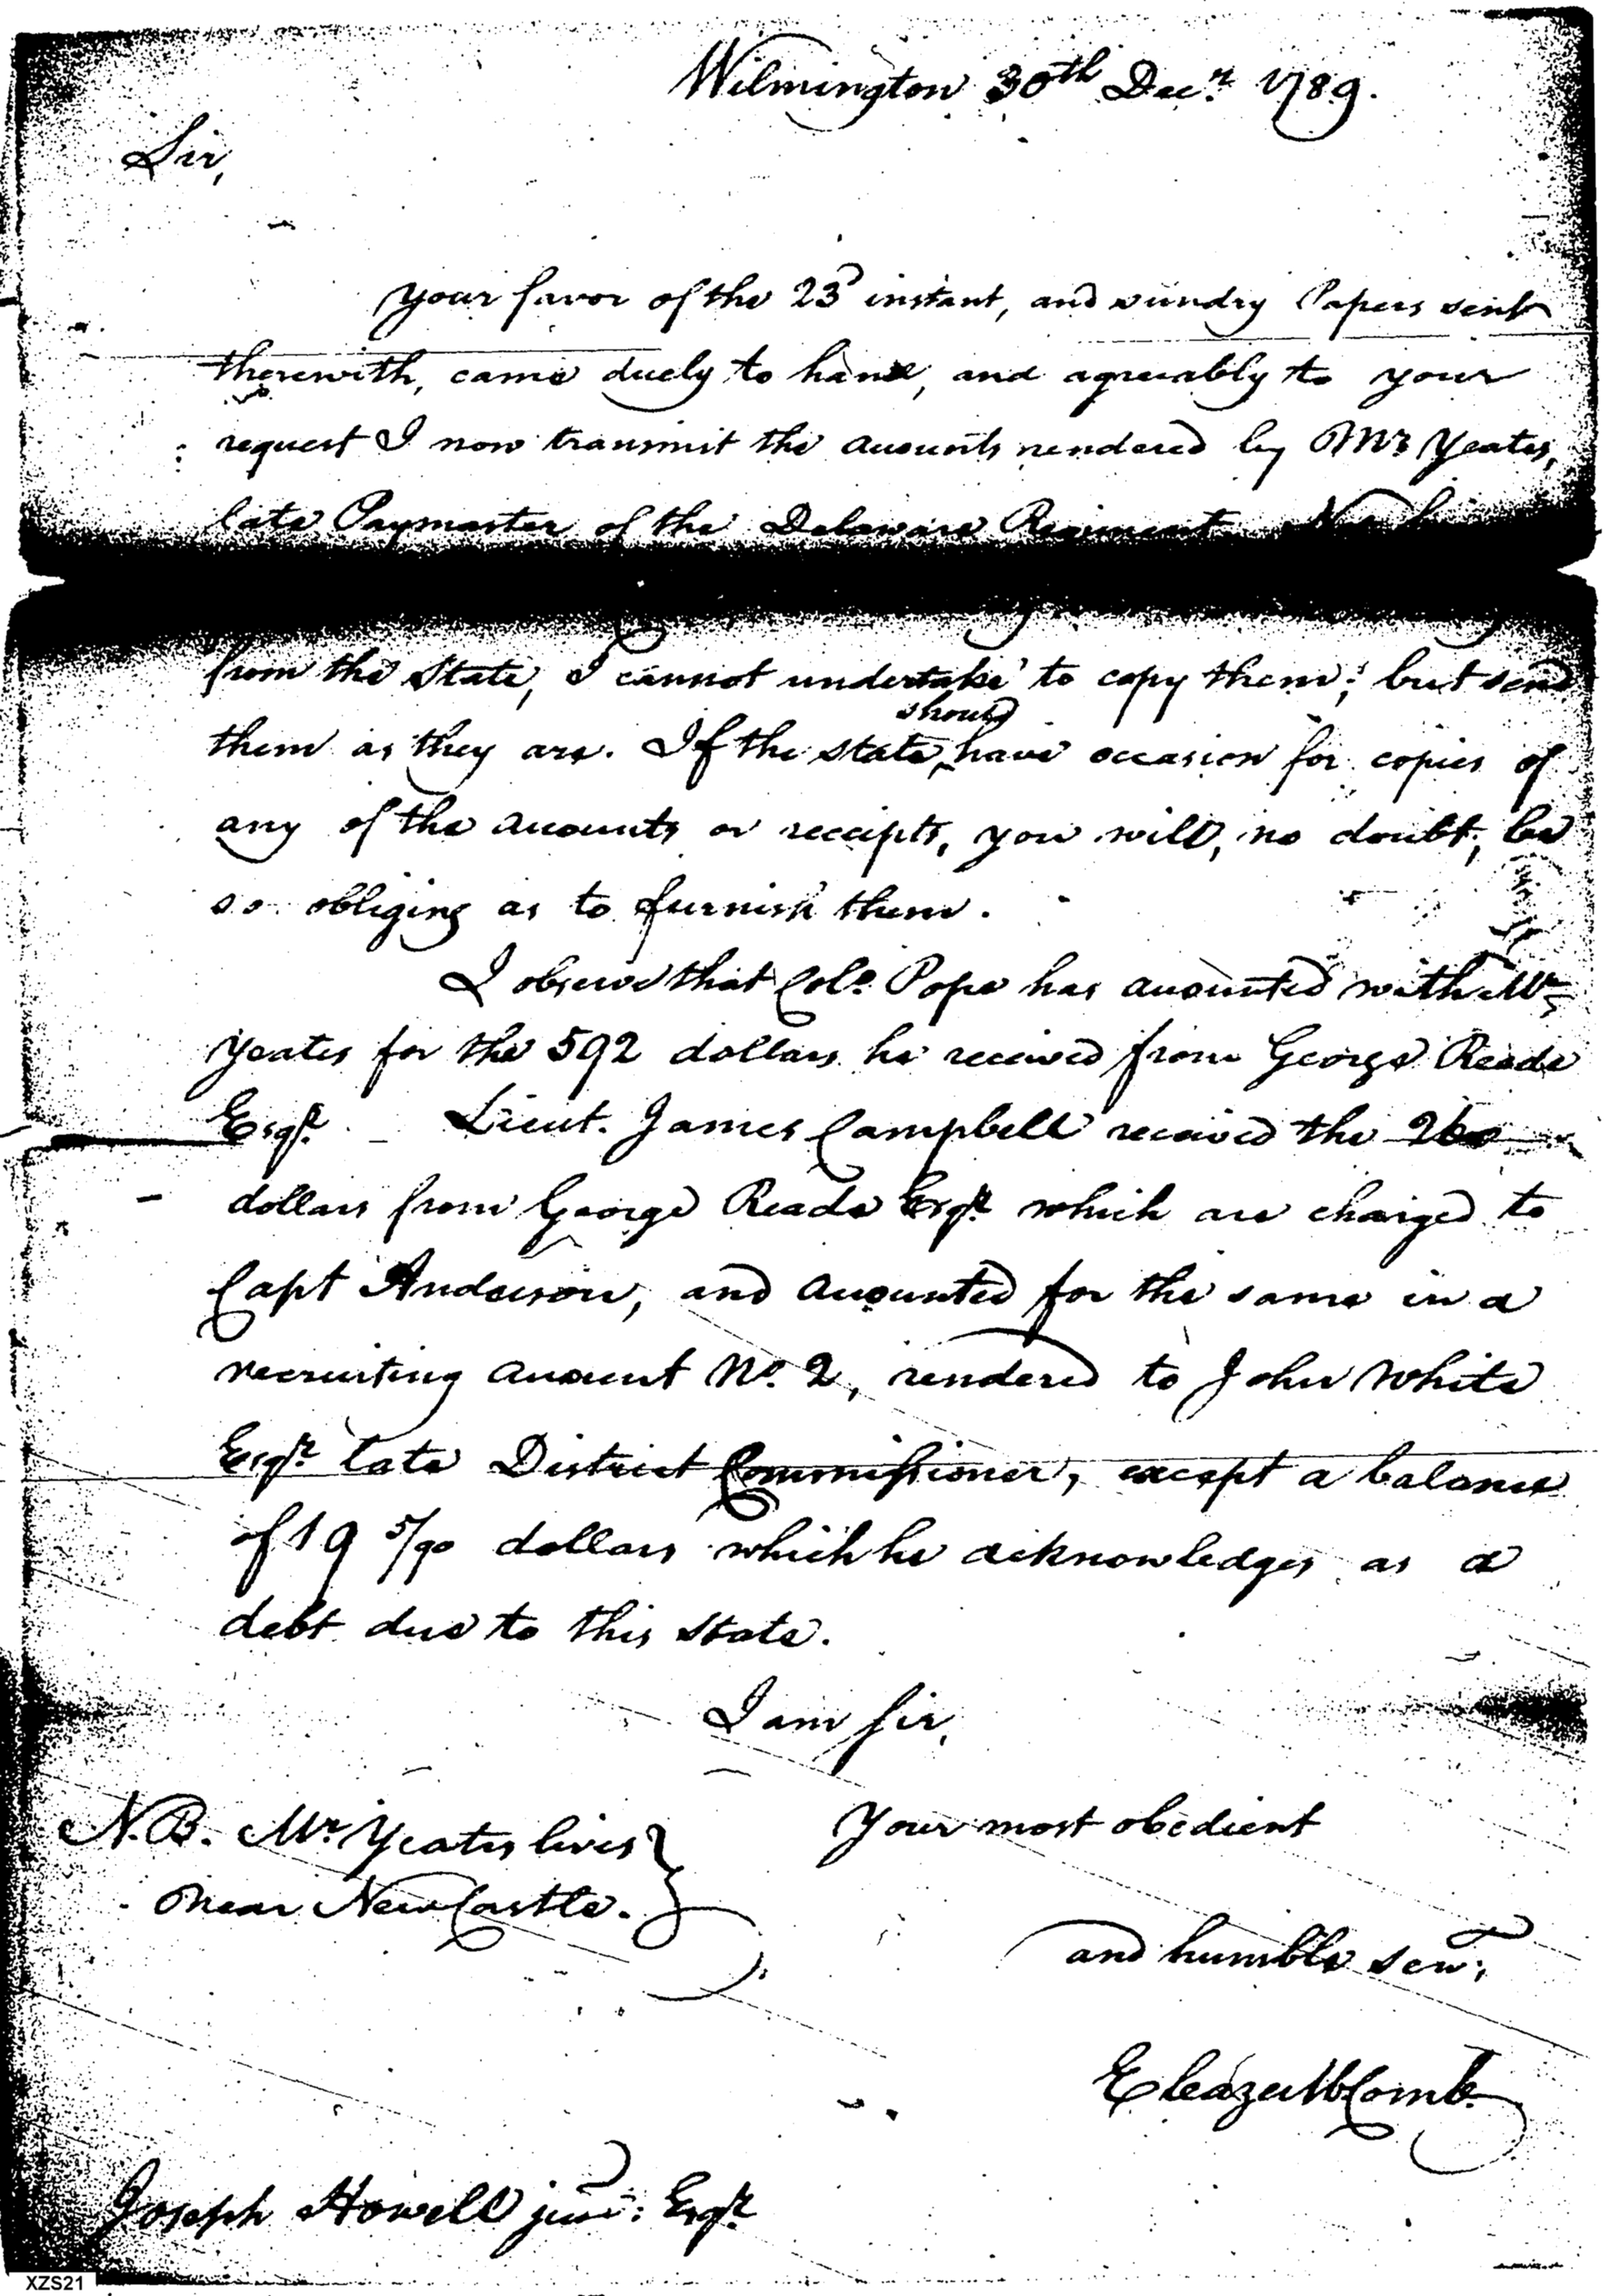 Wilmington 30th Decr. 1789.
Sir,
Your favor of the 23d instant, and sundry Papers sent
therewith, came duely to hand, and agreeably to your
request I now transmit the accounts rendered by Mr. Yeates,
late Paymaster of the Delaware Regiment
from the State, I cannot undertake to copy them; but send
should
them as they are. If the State ‸ have occasion for copies of
any of the accounts or receipts, you will, no doubt, be
so obliging as to furnish them.
I observe that Colo. Pope has accounted with Mr.
Yeates for the 592 dollars he received from George Reade
Esqr. _ Lieut. James Campbell received the 260
dollars from George Reade Esqr. which are charged to
Capt Anderson, and accounted for the same in a
recruiting account No. 2, rendered to John White
Esqr. late District Commissioner, except a balance
of 19 5/90 dollars which he acknowledges as a
debt due to this State.
I am Sir,
Your most obedient
N.B. Mr. Yeates lives
near New Castle.
and humble servt.
Eleazer McComb.
Joseph Howell junr: Esqr.
XZS21